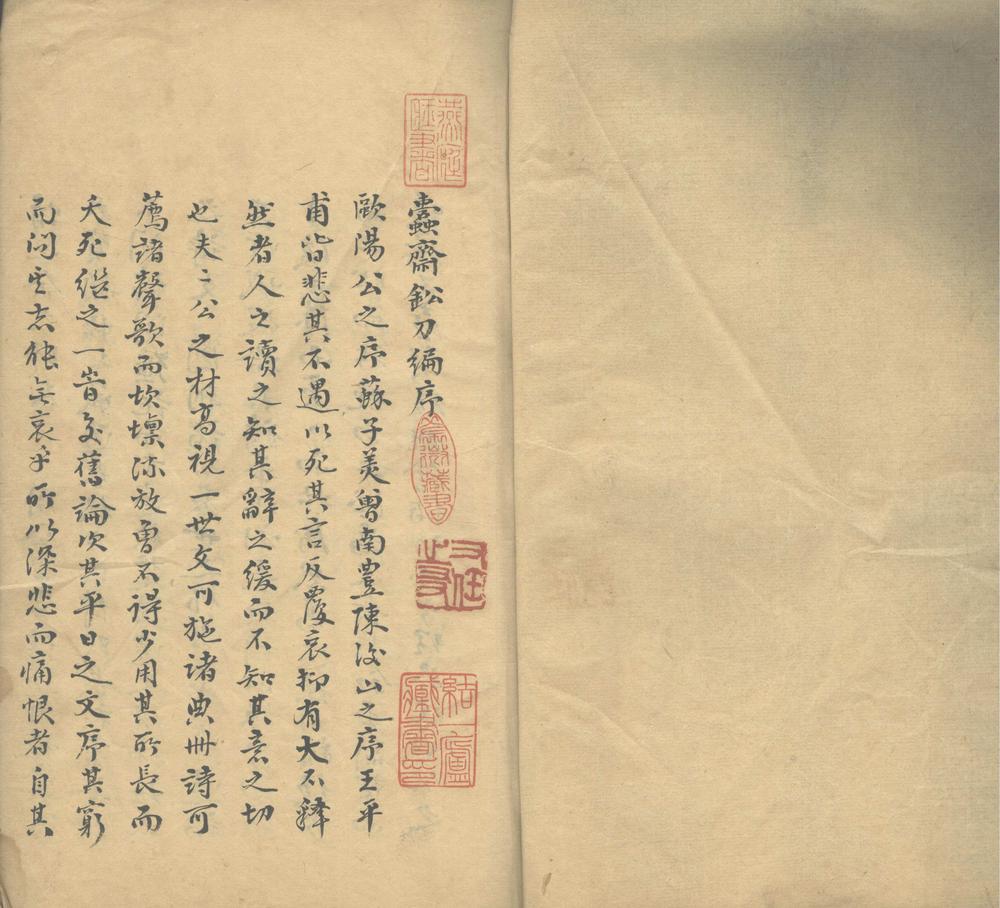 燕庭藏書
蠹齋鈆刀編序
結一廬藏書印
歐陽公之序蘇子美曾南豐陳後山之序王平
甫皆悲其不遇以死其言反覆哀抑有大不釋
然者人之讀之知其辭之緩而不知其意之切
也夫二公之材高視一世文可施諸典冊詩可
薦諸聲歌而坎壈流放曾不得少用其所長而
夭死继之一旹交舊論次其平日之文序其窮
而閔其志能无哀乎所以深悲而痛恨者自其